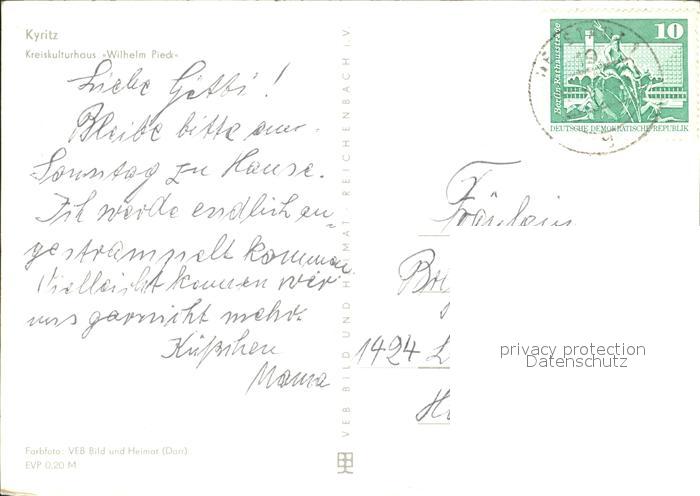 Kyritz
Kreiskulturhaus »Wilhelm Pieck«
Liebe Gitti!
Bleibe bitte am
Sonntag zu Hause.
Ich werde endlich an-
gestrampelt kommen.
Vielleicht kennen wir
uns garnicht mehr.
Küßchen
Mama
Farbfoto: VEB Bild und Heimat (Darr)
EVP 0,20 M
VEB BILD UND HEIMAT REICHENBACH i.V.
10
Berlin-Rathausstraße
DEUTSCHE DEMOKRATISCHE REPUBLIK
Fräulein
1424 L
privacy protection
Datenschutz